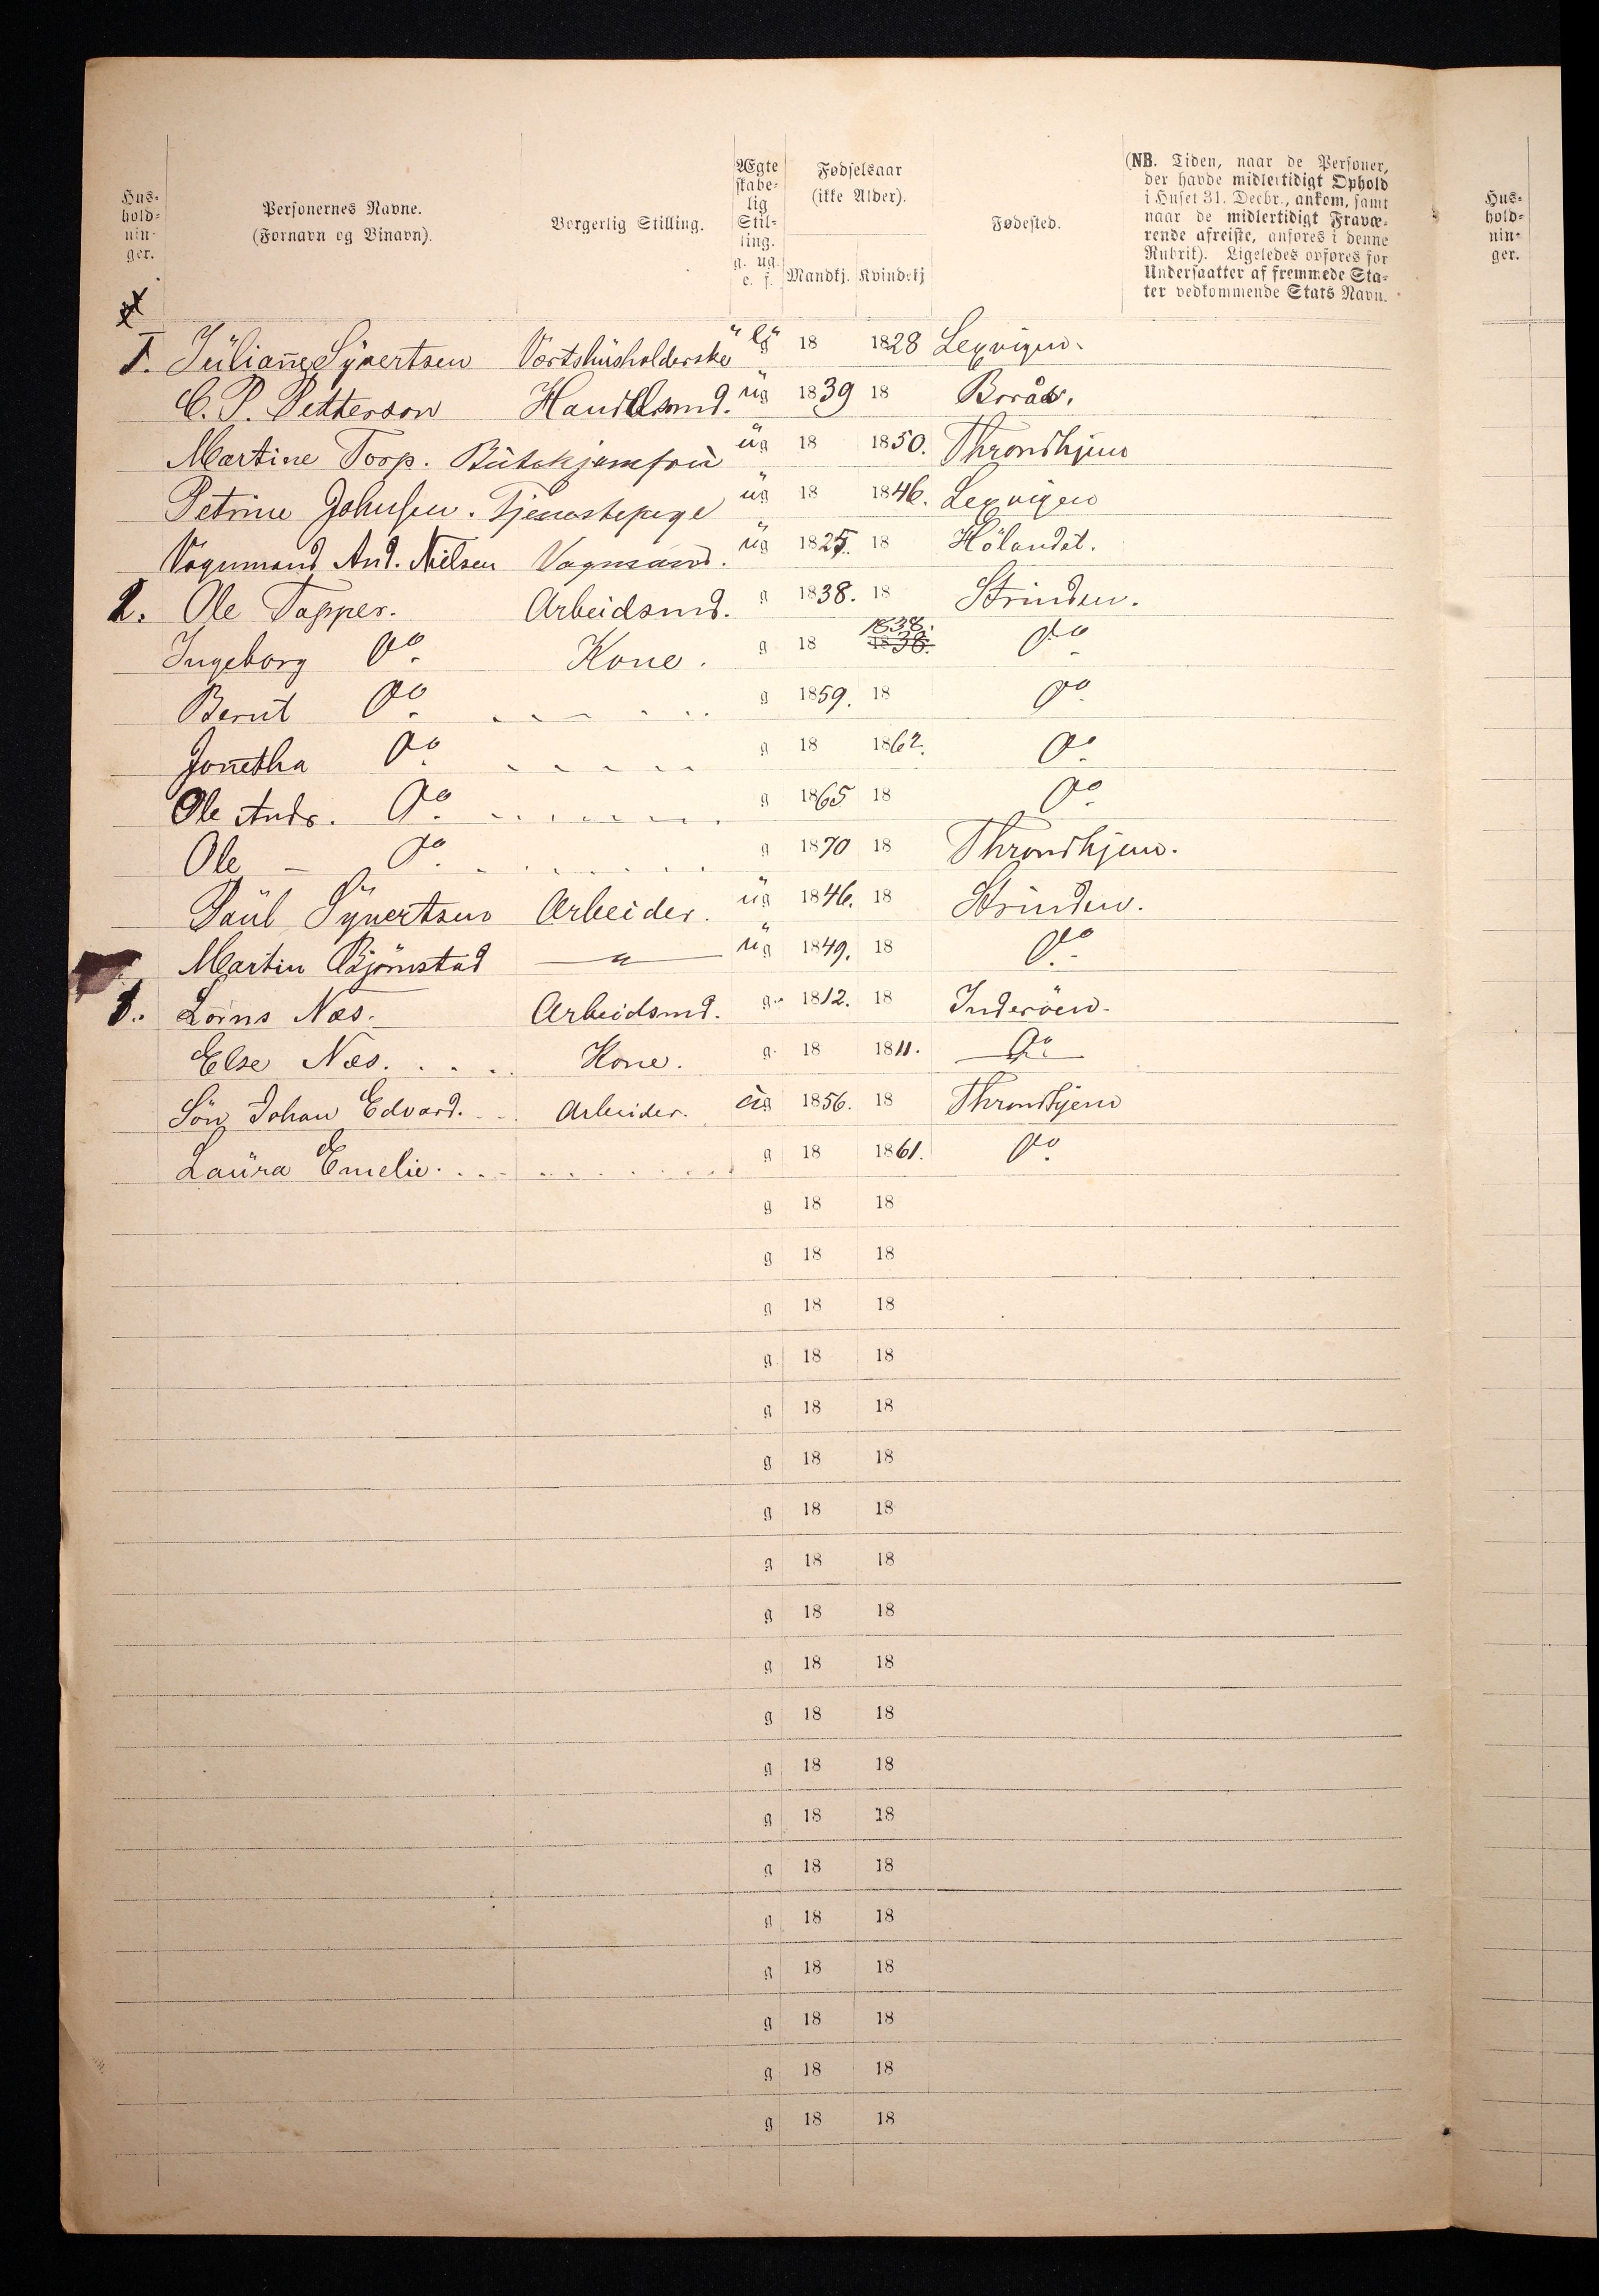 Hus-
hold-
nin-
ger.
Personernes Navne.
(Fornavn og Binavn).
Borgerlig Stilling.
Ægte
skabe-
lig
Stil-
ling.
g. ug.
e. f.
Fødselsaar
(ikke Alder).
Mandkj. Kvindekj
Fødested.
(NB. Tiden, naar de Personer,
der havde midlertidigt Ophold
i Huset 31. Decbr., ankom, samt
naar de midlertidigt Fravæ-
rende afreiste, anføres i denne
Rubrik). Ligeledes opføres for
Undersaatter af fremmede Sta-
ter vedkommende Stats Navn.
Hus-
hold-
nin-
ger.
1. Juliane Syvertsen Værtshusholderske 18 1828 Lexvigen.
C. P. Petterson Handelsmd. ug 1839 18 Borås.
Martine Torp. Butikjomfru ug 18 1850. Throndhjem
Petrine Johnsen. Tjenestepige ug 18 1846. Lexvigen
Vognmand And. Nielsen Vognmand. ug 1825. 18 Hölandet.
2. Ole Tapper. Arbeidsmd. g 1838. 18 Strinden.
Ingeborg Do. Kone. g 18 1838. 1838. Do.
Bernt Do. g 1859. 18 Do.
Jonetha Do. g 18 1862. Do.
Ole Andr. Do. g 1865 18 Do.
Ole - Do. g 1870 18 Throndhjem.
Paul Syvertsen Arbeider. ug 1846. 18 Strinden.
Martin Björnstad — " — ug 1849. 18 Do.
Næs. Arbeidsmd. g. 1812. 18 Inderöen.
Else Næs. Kone. g. 18 1811. Do.
Sön Johan Edvard. Arbeider. ug 1856. 18 Throndhjem
Laura Emelie. g 18 1861. Do.
g 18 18
g 18 18
g 18 18
g 18 18
g 18 18
g 18 18
g 18 18
g 18 18
g 18 18
g 18 18
g 18 18
g 18 18
g 18 18
g 18 18
g 18 18
g 18 18
g 18 18
g 18 18
g 18 18